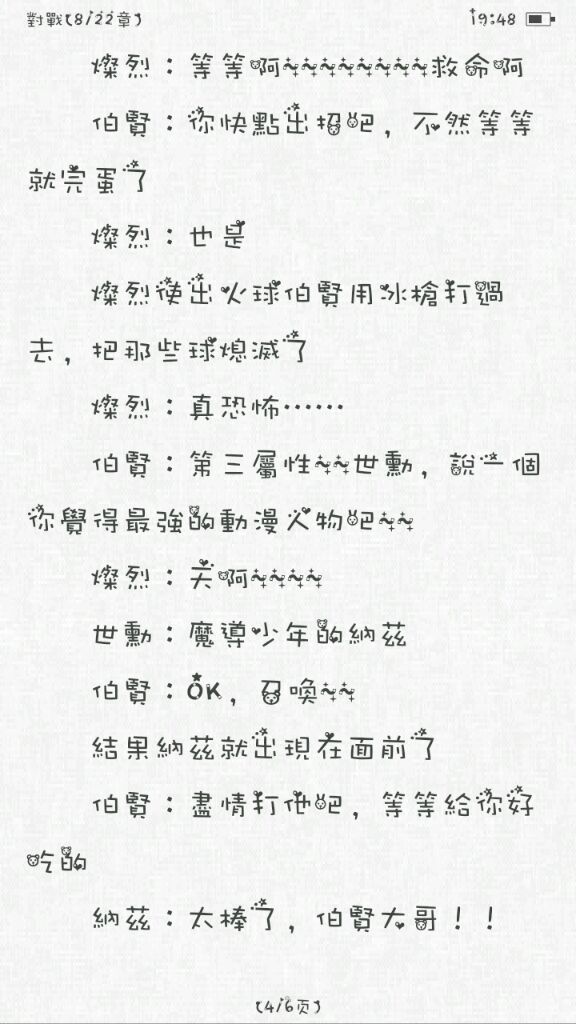 對戰(8/22章)
19:48
燦烈：等等啊~~~~~~~救命啊
伯賢：你快點出招吧，不然等等
就完蛋了
燦烈：也是
燦烈使出火球伯賢用冰槍打過
去，把那些球熄滅了
燦烈：真恐怖……
伯賢：第三屬性~~世勳，說一個
你覺得最強的動漫人物吧~~
燦烈：天啊~~~~
世勳：魔導少年的納茲
伯賢：OK，召喚~~
結果納茲就出現在面前了
伯賢：盡情打他吧，等等給你好
吃的
納茲：太棒了，伯賢大哥！！
(4/6页)